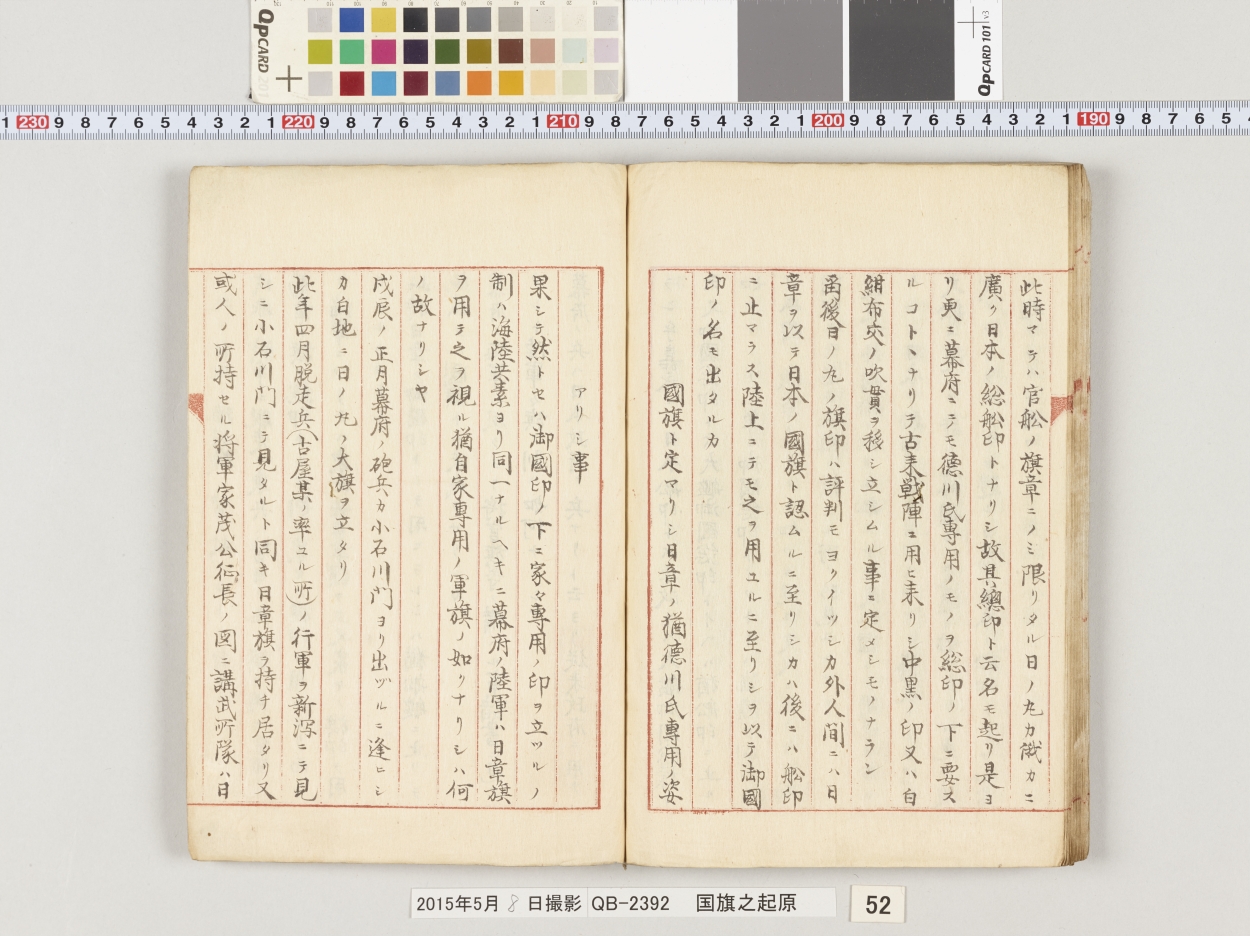 此時マテハ官舩ノ旗章ニノミ限リタル日ノ丸カ俄カニ
廣ク日本ノ総舩印トナリシ故其總印ト云名モ起リ是ヨ
リ更ニ幕府ニテモ德川氏專用ノモノヲ総印ノ下ニ要ス
ルコトヽナリテ古来戰陣ニ用ヒ来リシ中黒ノ印又ハ白
紺布交ノ吹貫ヲ移シ立シムル事ニ定メシモノナラン
爾後日ノ丸ノ旗印ハ評判モヨクイツシカ外人間ニハ日
章ヲ以テ日本ノ國旗ト認ムルニ至リシカハ後ニハ舩印
ニ止マラス陸上ニテモ之ヲ用ユルニ至リシヲ以テ御國
印ノ名モ出タルカ
國旗ト定マリシ日章ノ猶德川氏專用ノ姿
アリシ事
果シテ然トセハ御國印ノ下ニ家々專用ノ印ヲ立ツルノ
制ハ海陸共素ヨリ同一ナルヘキニ幕府ノ陸軍ハ日章旗
ヲ用テ之ヲ視ル猶自家專用ノ軍旗ノ如クナリシハ何
ノ故ナリシヤ
戊辰ノ正月幕府ノ砲兵カ小石川門ヨリ出ヅルニ逢ヒシ
カ白地ニ日ノ丸ノ大旗ヲ立タリ
此年四月脱走兵(古屋某ノ率ユル所)ノ行軍ヲ新潟ニテ見
シニ小石川門ニテ見タルト同キ日章旗ヲ持チ居タリ又
或人ノ所持セル将軍家茂公征長ノ図ニ講武所隊ハ日
2015年5月 8 日撮影 QB-2392 国旗之起原
52
QPCARD 101 v3
QPCARD
1 230 9 8 7 6 5 4 3 2 1 220 9 8 7 6 5 4 3 2 1 210 9 8 7 6 5 4 3 2 1 200 9 8 7 6 5 4 3 2 1 190 9 8 7 6 5